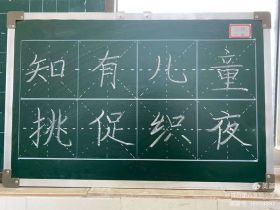 知有儿童
挑促织夜